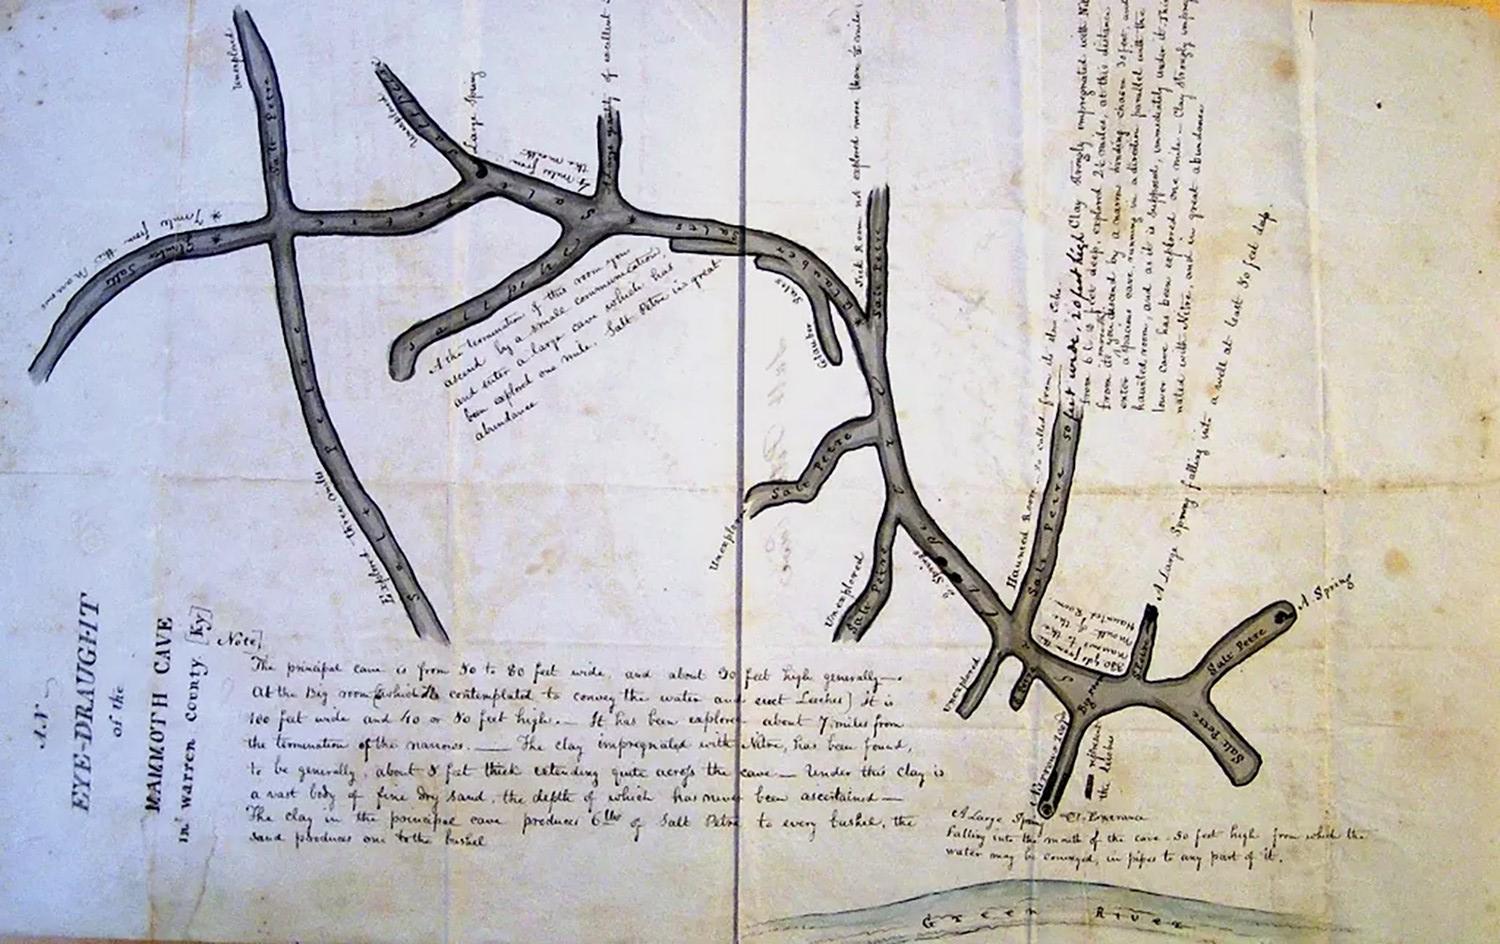 AN
EYE-DRAUGHT
of the
MAMMOTH CAVE
in Warren County [Ky]
Note]
The principal cave is from 50 to 80 feet wide, and about 30 feet high generally—
At the Big room [which is contemplated to convey the water and erect Leeches] It is
100 feet wide and 40 or 50 feet high.— It has been explored about 7 miles from
the termination of the narrows. — The clay impregnated with Nitre, has been found,
to be generally, about 5 feet thick extending quite across the cave — Under this clay is
a vast body of fine dry sand, the depth of which has never been ascertained —
The clay in the principal cave produces 6 lbs of Salt Petre to every bushel, the
sand produces one to the bushel
Unexplored
Salt Petre
7 miles from the Narrows
Glauber Salts
Explored three miles
Salt Petre
Unexplored
Salt Petre
Large Spring
4 miles from
the mouth
quantity of excellent
At the termination of this room you
ascend by a small communication,
and enter a large cave which has
been explored one mile. Salt Petre in great
abundance
Glauber Salts
Glauber Salts
Sick Room not explored more than ½ mile
Salt Petre
Unexplored
Salt Petre
Unexplored
Salt Petre
2 Springs
Haunted Room so called from its slow Echo
Salt Petre
50 feet wide, 20 feet high Clay strongly impregnated with
from 6 to 15 feet deep, explored 2½ miles, at this distance
from its mouth you descend by a narrow winding chasm 30 feet, and
enter a spacious cave running in a direction parallel with the
haunted room, and as it is supposed, immediately under it. This
lower cave has been explored one mile — Clay strongly impreg
nated with Nitre, and in great abundance
A Large Spring falling into a well at least 30 feet deep.
A Spring
Salt Petre
Salt Petre
Salt Petre
S. Petre
Big room
320 yds from the
narrows to the
mouth of the
Haunted Room.
Unexplored
Narrows
Entrance
A Large Spring
Falling into the mouth of the cave 30 feet high from which the
water may be conveyed, in pipes to any part of it.
Green River